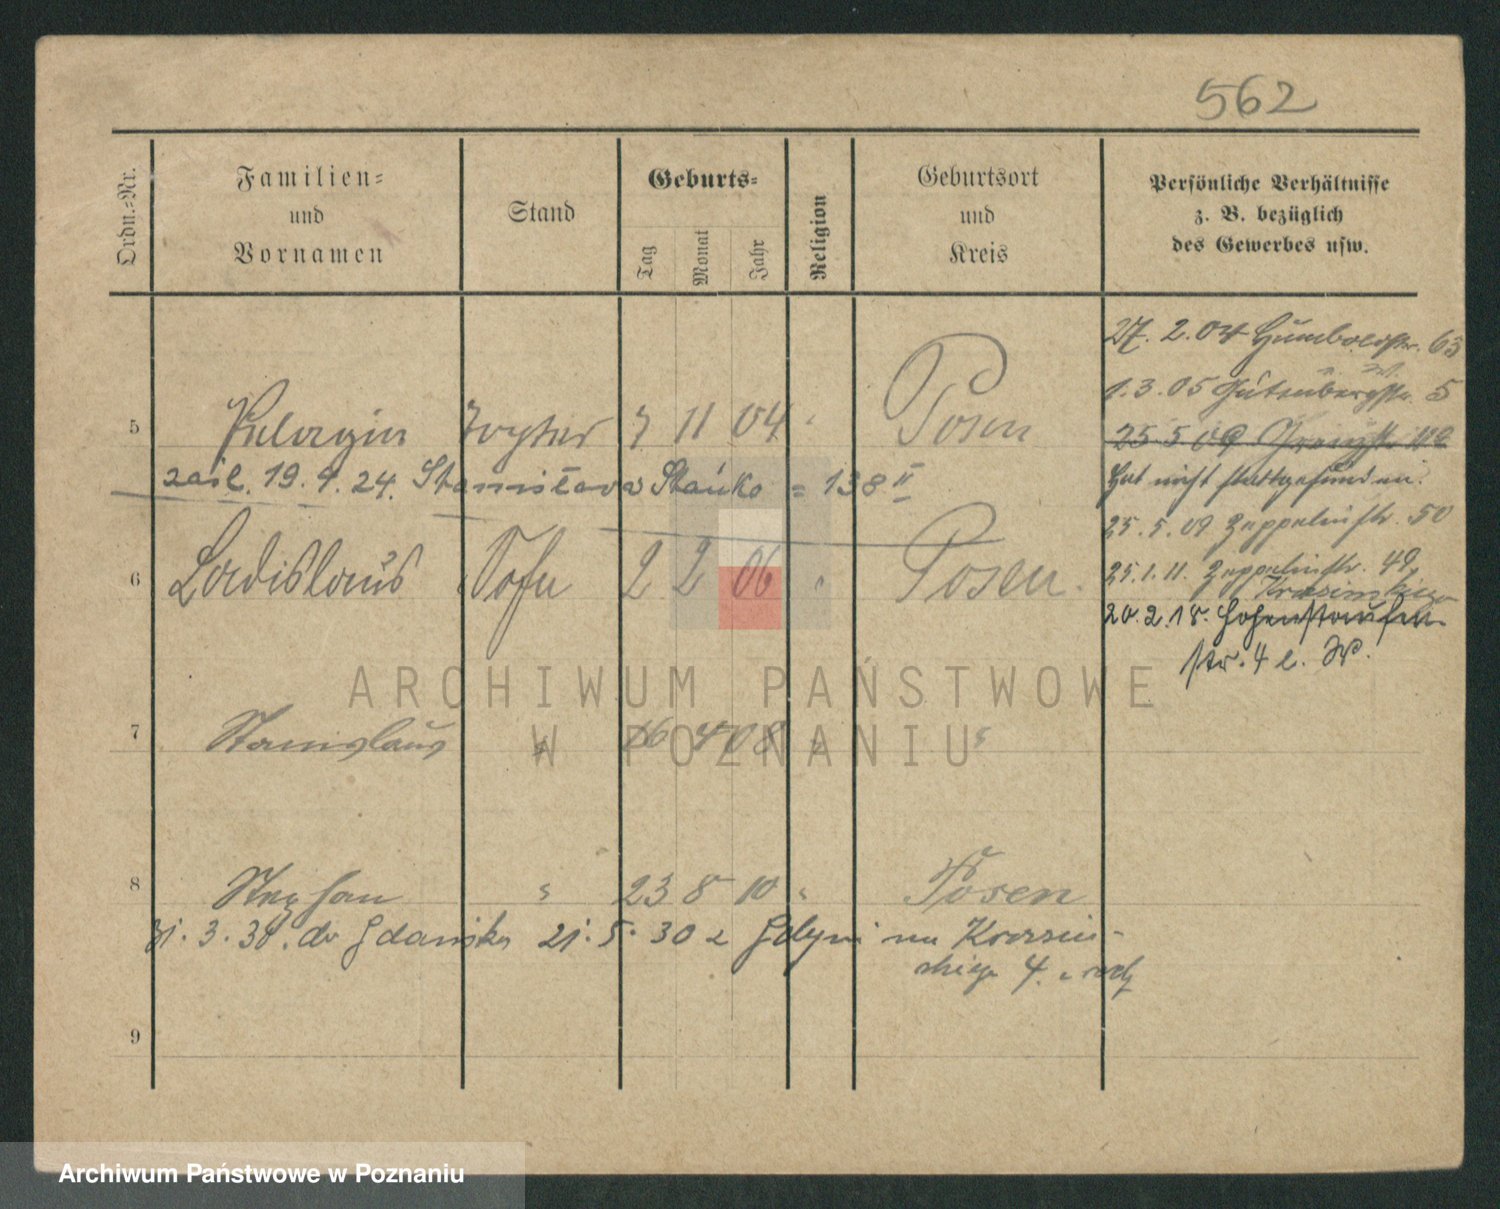 562
Ordn.-Nr.
Familien-
und
Vornamen
Stand
Geburts-
Tag
Monat
Jahr
Religion
Geburtsort
und
Kreis
Persönliche Verhältnisse
z. B. bezüglich
des Gewerbes usw.
5 Pelagia Tochter 7 11 04 " Posen
zaśl. 19.4.24. Stanisława Stańko = 138 II
6 Ladislaus Sohn 2 2 06 " Posen.
7 Stanislaus " 16 4 08 " "
8 Stephan " 23 8 10 " Posen
31. 3. 30. do Gdańska 21. 5. 30 z Gdyni na Krasiń-
skiego 4.
9
27. 2. 04 Humboldtstr. 63
1. 3. 05 Gutenbergstr. 5
25 5 09
Hat nicht stattgefunden.
25. 5. 09 Zeppelinstr. 50
25. 1. 11. Zeppelinstr. 49
Krasińskiego
20. 2. 18. Hohenstaufen
str. 4
ARCHIWUM PAŃSTWOWE
W POZNANIU
Archiwum Państwowe w Poznaniu